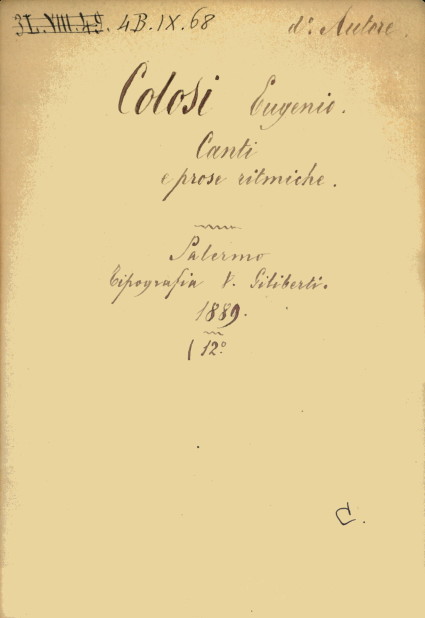 3L.VIII.49. 4B.IX.68 d'. Autore.
Colosi Eugenio.
Canti
e prose ritmiche.
Palermo
Tipografia V. Giliberti.
1889.
( 12°
C.